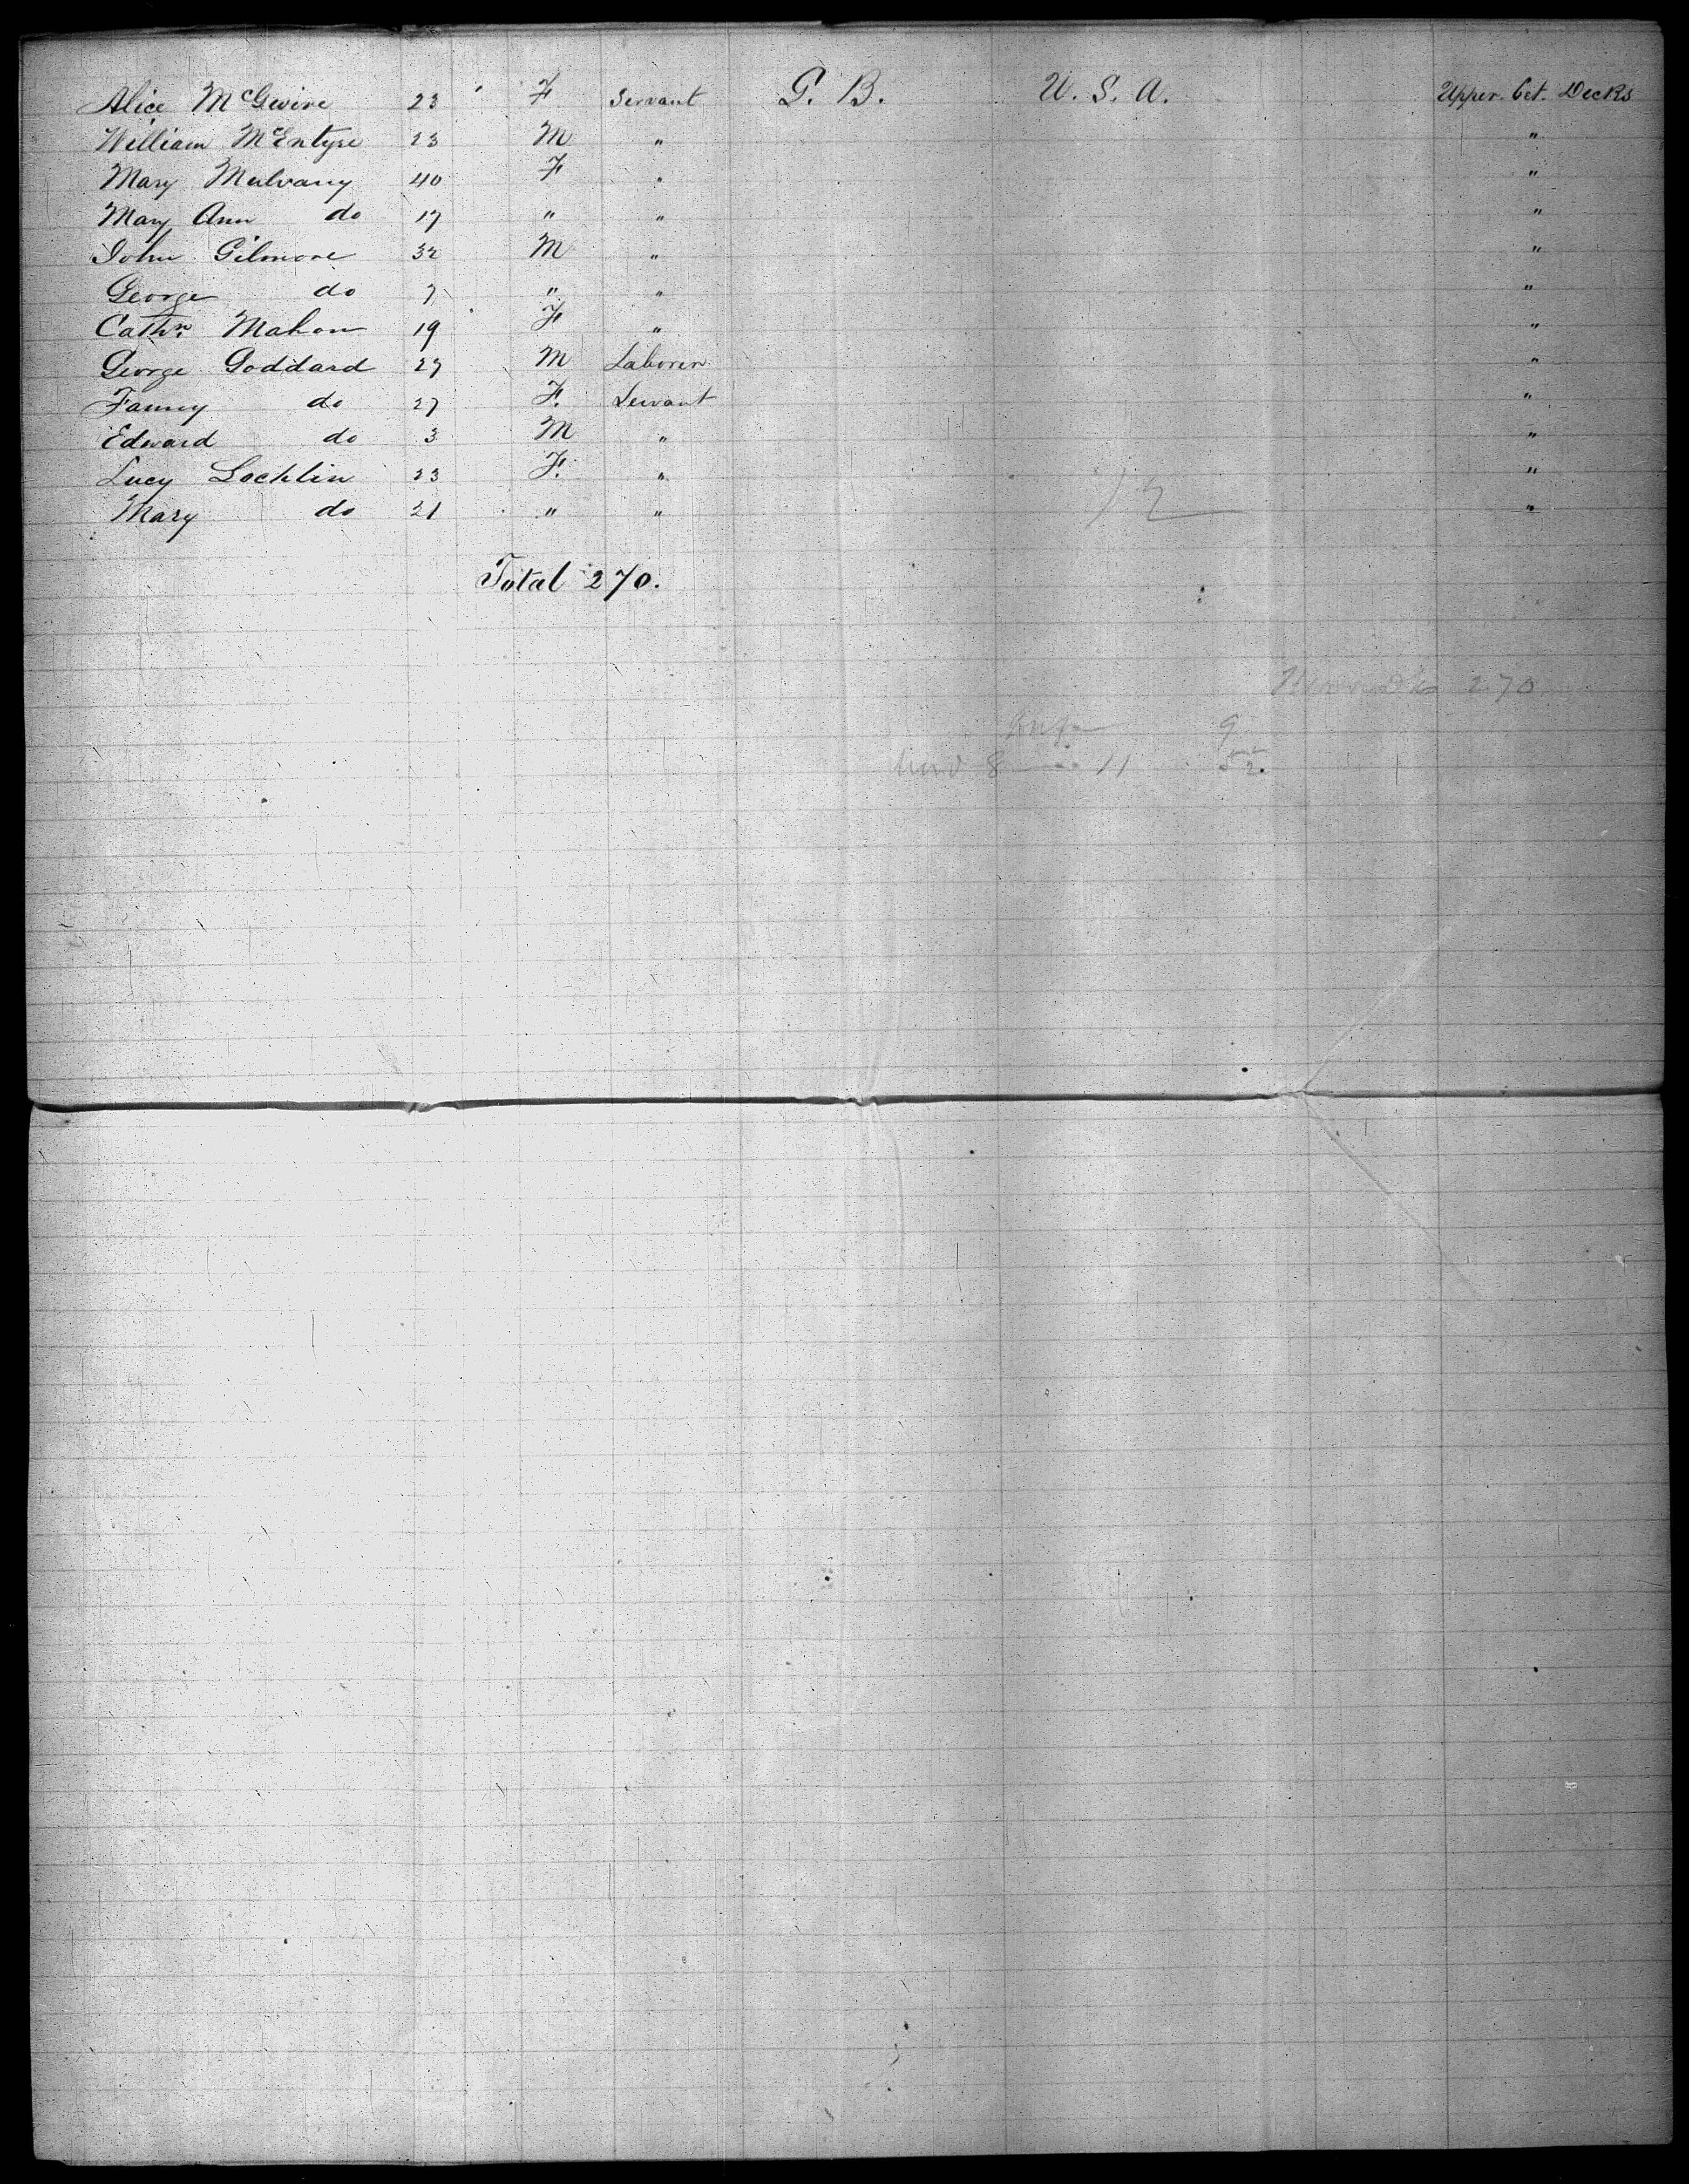 Alice McGwire 23 F Servant G. B. U. S. A. Upper. bet. Decks
William McEntyre 23 M " "
Mary Mulvany 40 F " "
Mary Ann do 17 " " "
John Gilmore 32 M " "
George do 7 " " "
Cathn Mahon 19 F " "
George Goddard 27 M Laborer "
Fanny do 27 F. Servant "
Edward do 3 M " "
Lucy Lochlin 23 F. " "
Mary do 21 " " "
12
Total 270.
270
9
8 11 52